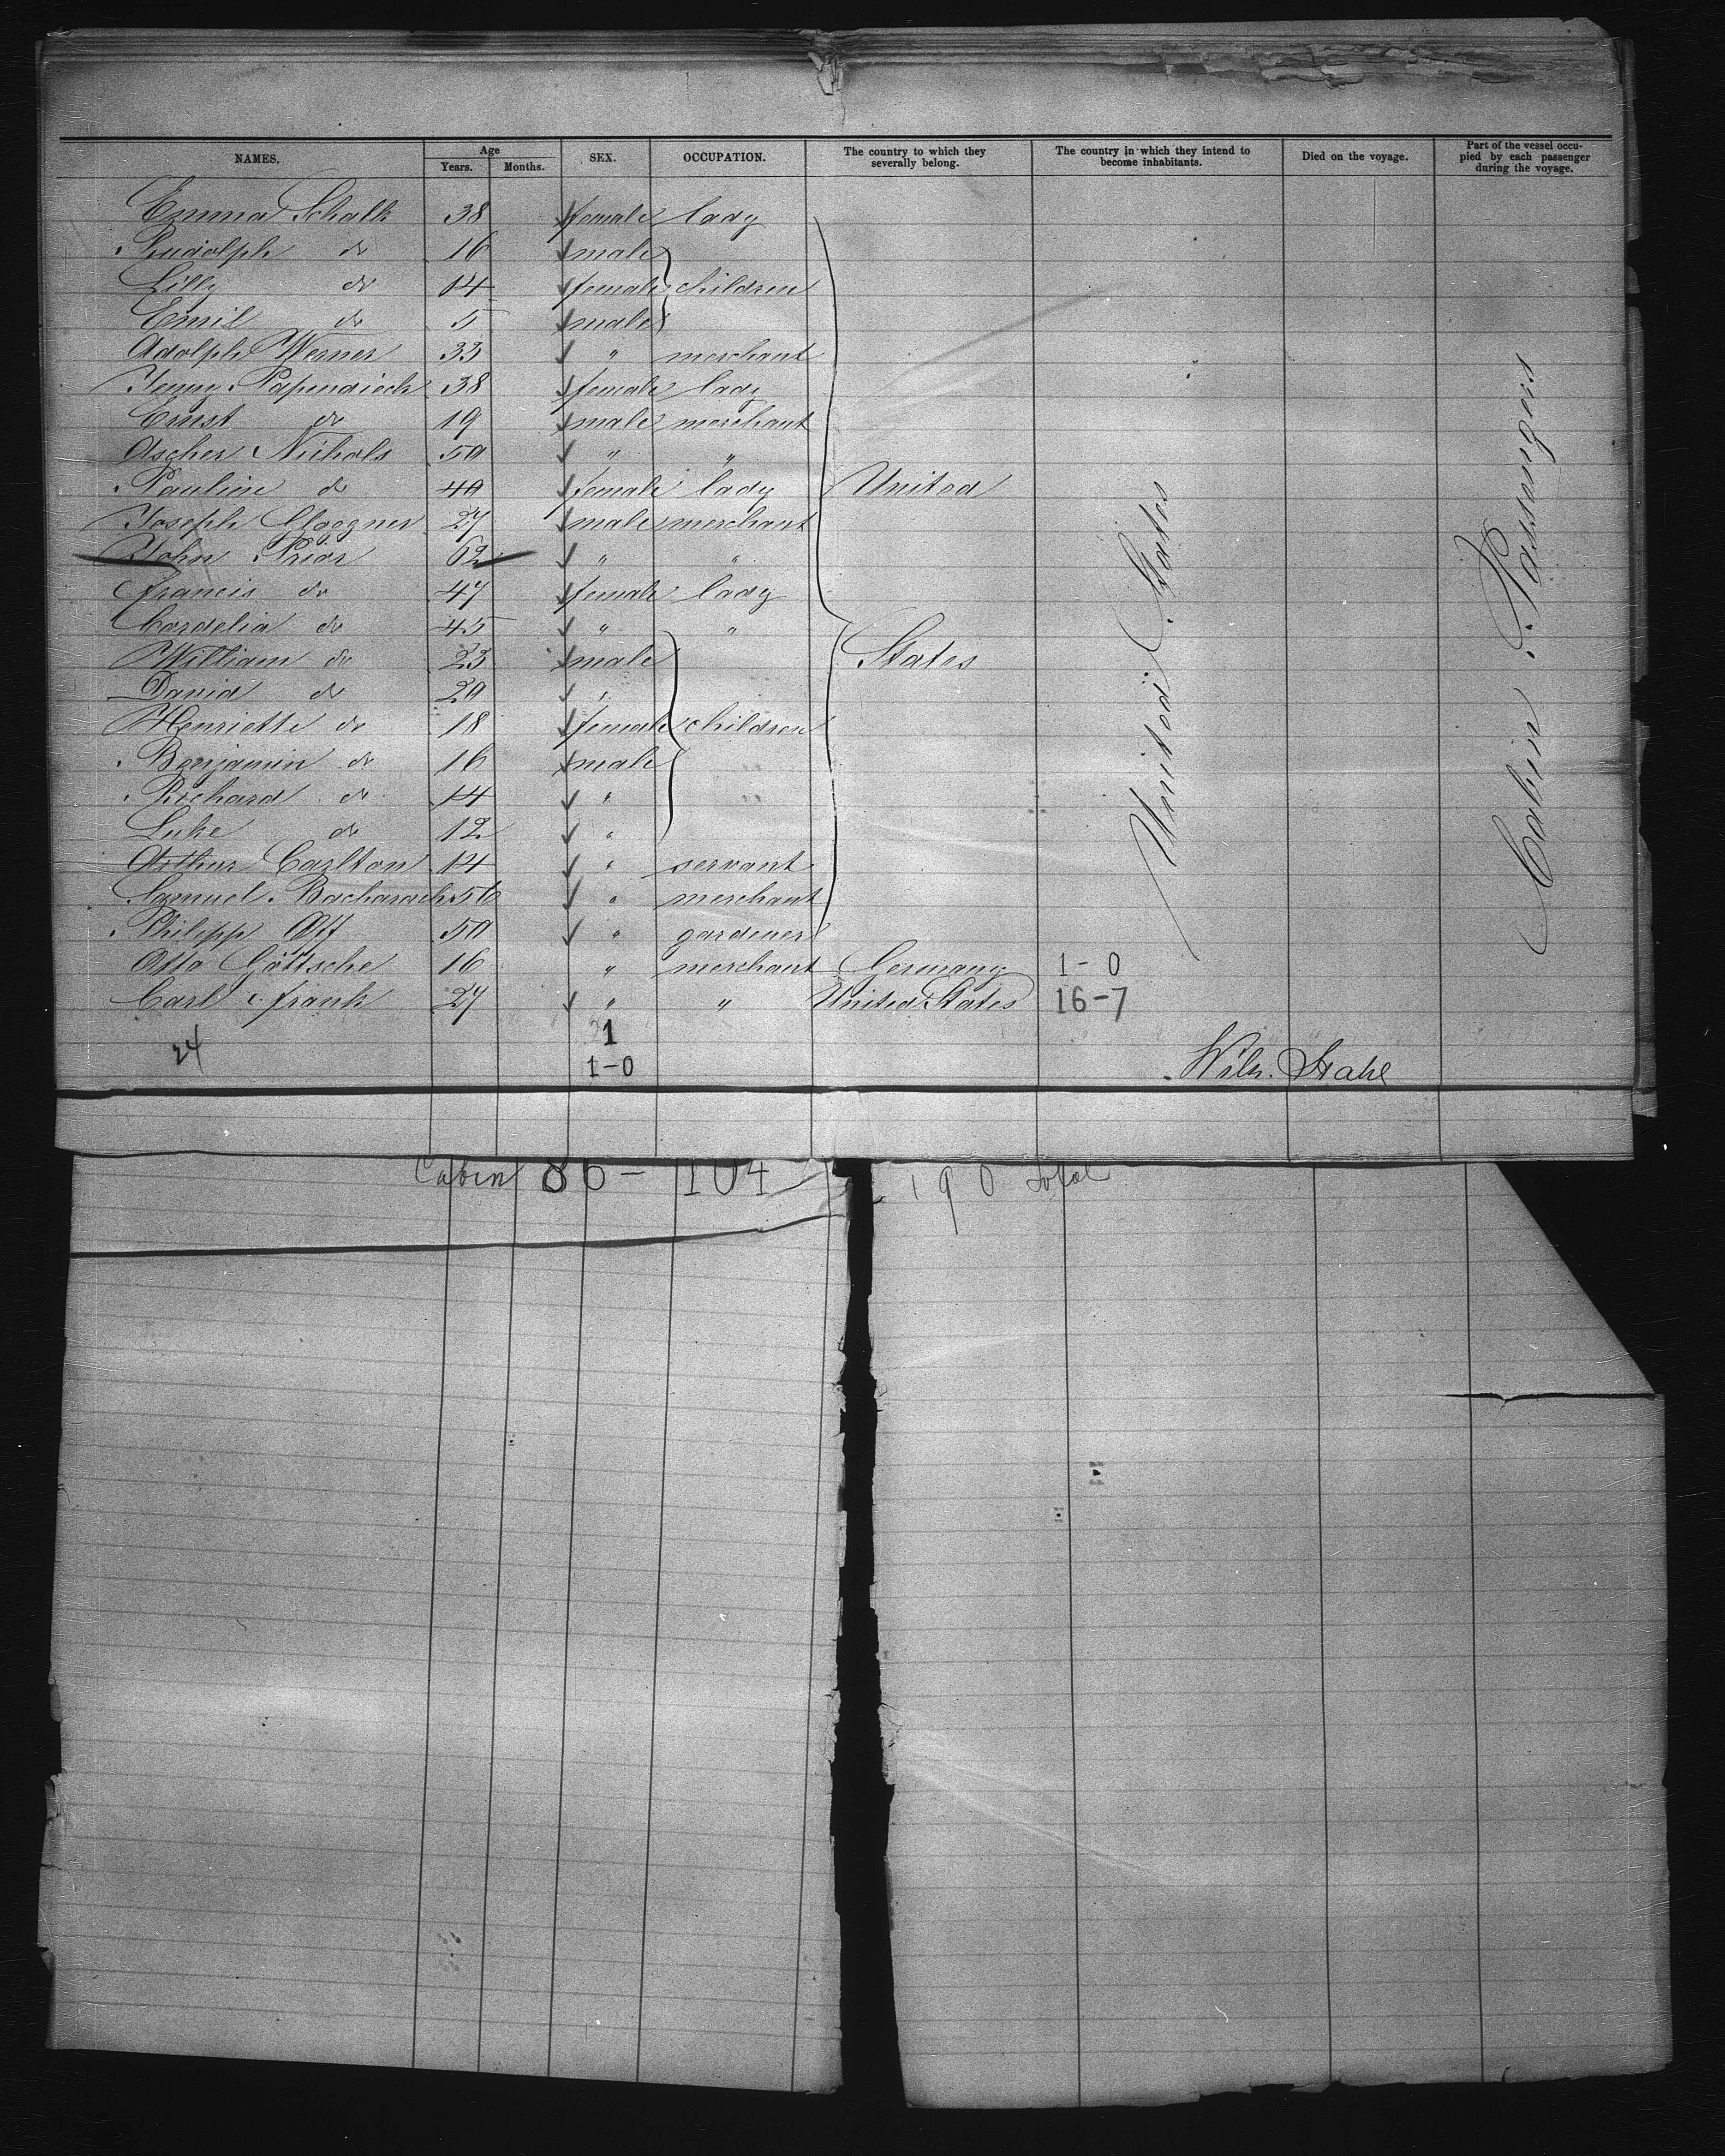 NAMES. Age Years. Months. SEX. OCCUPATION. The country to which they severally belong. The country in which they intend to become inhabitants. Died on the voyage. Part of the vessel occupied by each passenger during the voyage.
Emma Schalk 38 female lady
Rudolph do 16 male
Lilly do 14 female children
Emil do 5 male
Adolph Werner 33 " merchant
Jenny Papendieck 38 female lady
Ernst do 19 male merchant
Ascher Nichols 50 " "
Pauline do 40 female lady United
Joseph 27 male merchant
John Prior 62 " "
Francis do 47 female lady
Cordelia do 45 " "
William do 23 male States
David do 20 "
Henriette do 18 female children
Benjamin do 16 male
Richard do 14 "
Luke do 12 "
Arthur Carlton 14 " servant
Samuel Bacharach 56 " merchant
Philipp Ott 50 " gardener
Otto Göttsche 16 " merchant Germany 1-0
Carl Frank 27 " " United States 16-7
United States
Cabin Passengers
24 1
1-0
Wilh. Stahl
Cabin 86-104 190 total